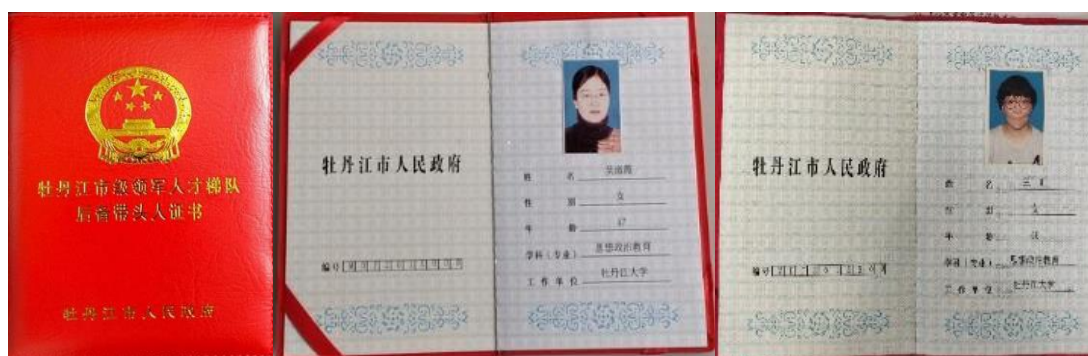 牡丹江市级领军人才梯队
后备带头人证书
牡丹江市人民政府
牡丹江市人民政府
编号
姓 名
性 别 女
年 龄
学科（专业） 思想政治教育
工作单位 牡丹江大学
牡丹江市人民政府
编号
姓 名
性 别 女
年 龄
学科（专业） 思想政治教育
工作单位 牡丹江大学